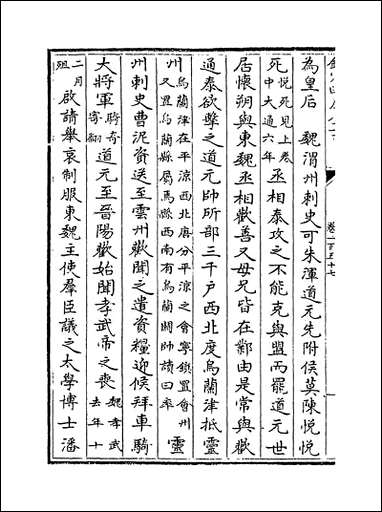 卷一百五十七
為皇后　魏渭州刺史可朱渾道元先附侯莫陳悦悦
死悦死見上卷中大通六年丞相泰攻之不能克與盟而罷道元世
居懷朔與東魏丞相歡善又母兄皆在鄴由是常與歡
通泰欲擊之道元帥所部三千户西北度烏蘭津抵靈
州烏蘭津在平涼西北唐分平涼之會寧鎮置會州又置烏蘭縣屬焉縣西南有烏蘭關帥讀曰率靈
州刺史曹泥資送至雲州歡聞之遣資糧迎候拜車騎
大將軍騎奇寄翻道元至晉陽歡始聞孝武帝之喪魏孝武去年十
二月殂啟請舉哀制服東魏主使羣臣議之太學博士潘